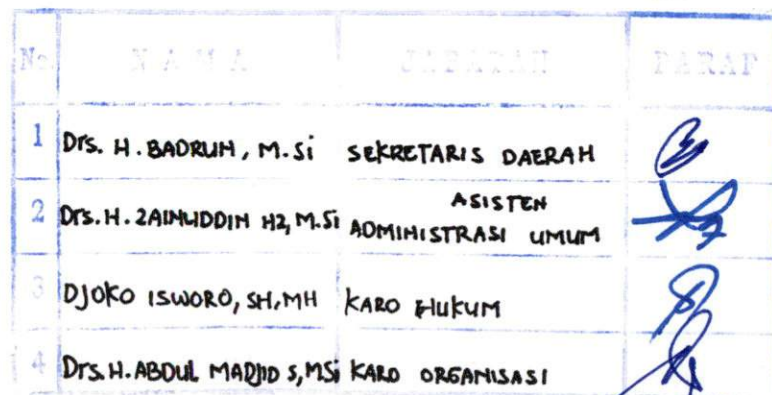 No. NAMA JABATAN PARAF
1 Drs. H. BADRUN, M.Si SEKRETARIS DAERAH
2 Drs. H. ZAINUDDIN HZ, M.Si ASISTEN
ADMINISTRASI UMUM
3 DJOKO ISWORO, SH, MH KARO HUKUM
4 Drs. H. ABDUL MADJID S, MSi KARO ORGANISASI